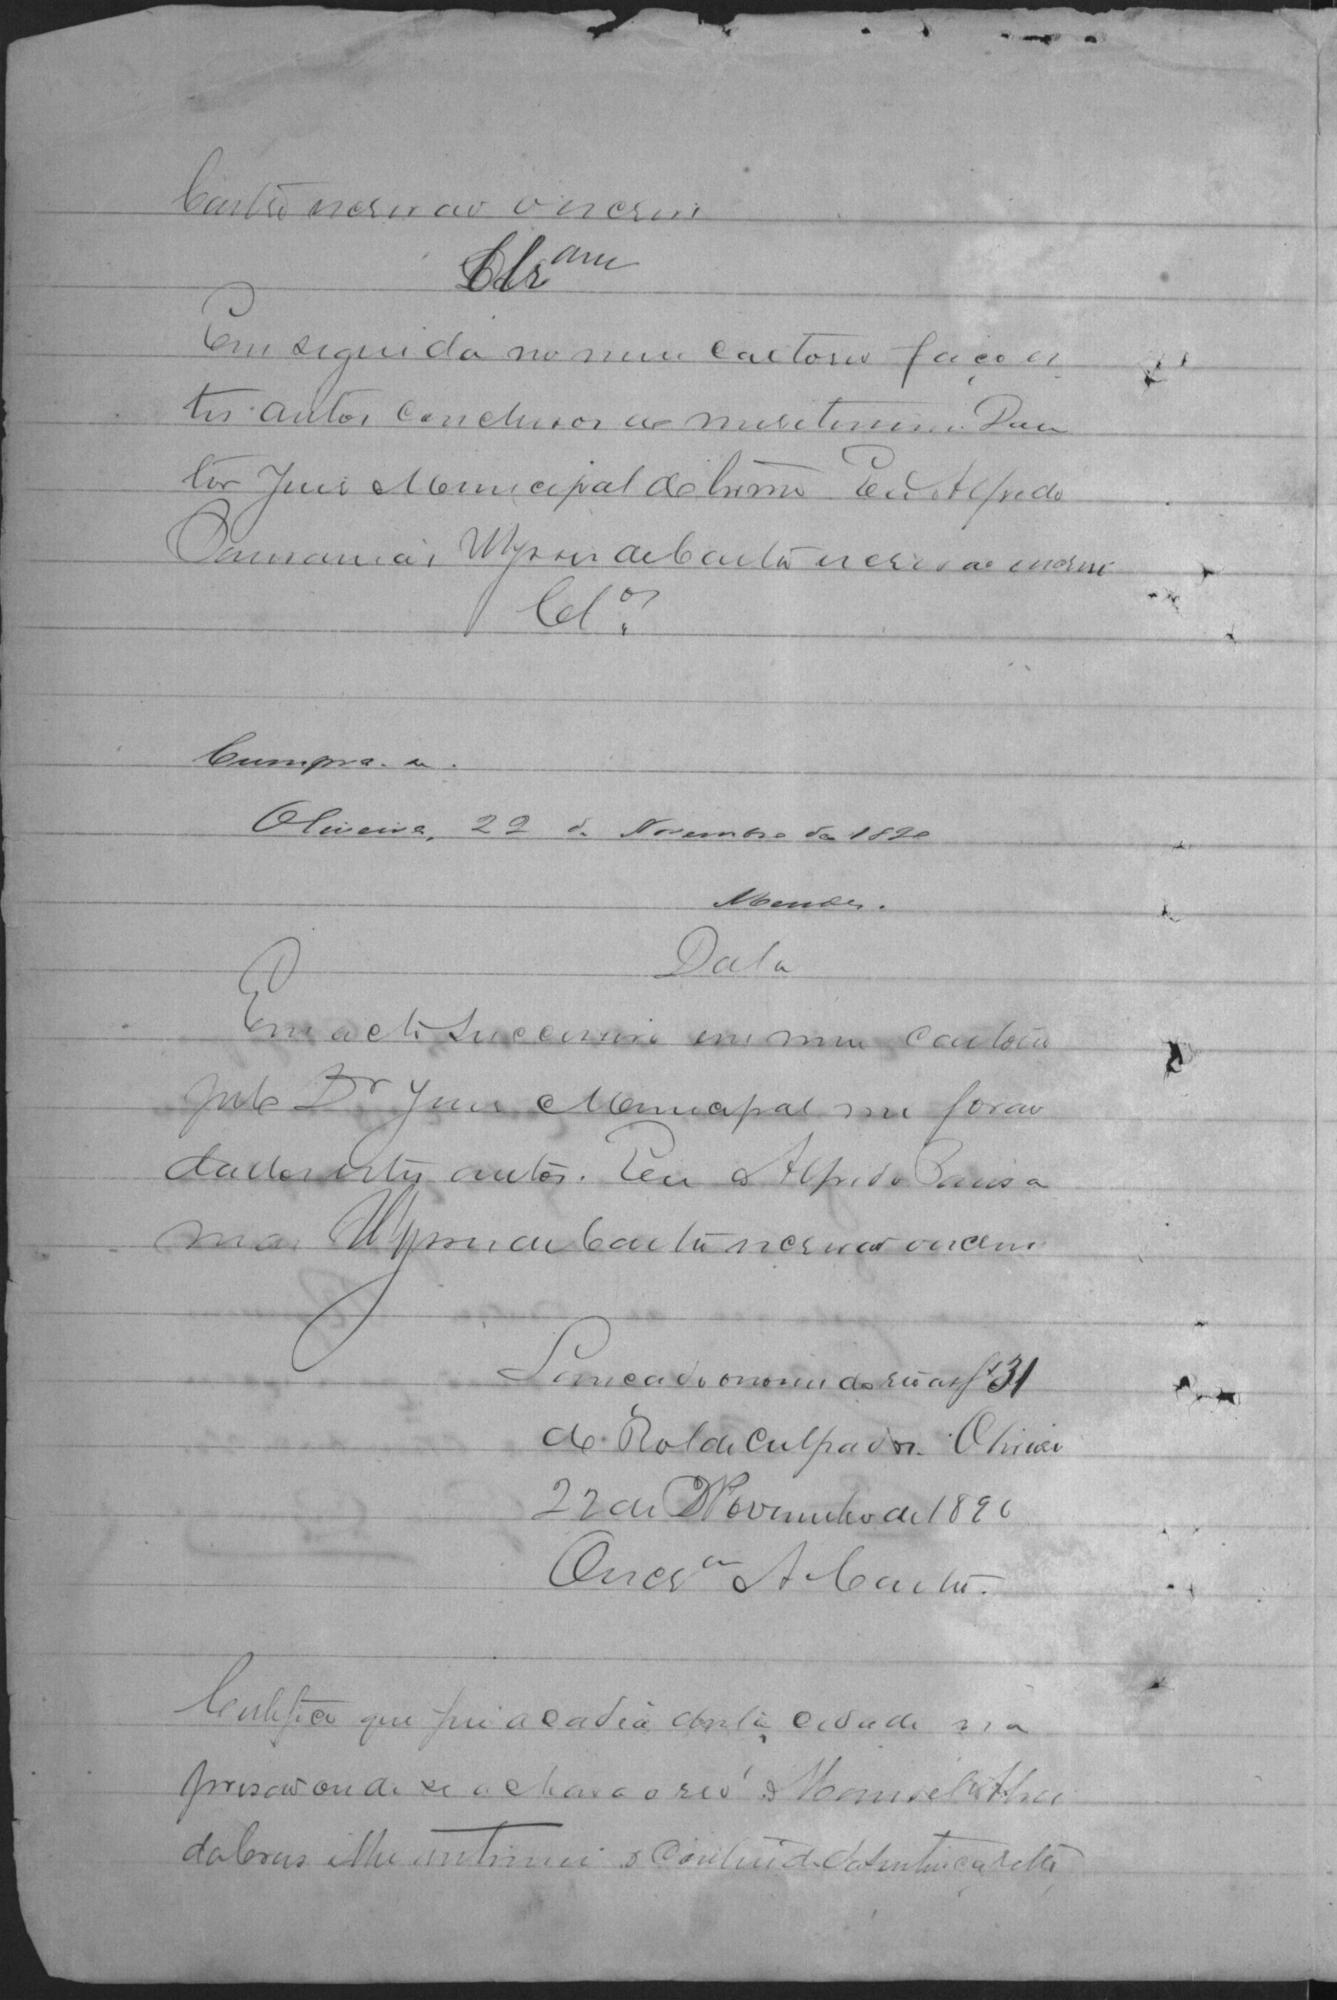 Castro escrivão o escrevi
Cls.am
Em seguida no meu cartorio faço es
tes autos conclusos ao meretissimo Dou
tor Juis Municipal do termo Eu Alfredo
Pausanias Ulysses de Castro escrivão escrevi
Cl.os
Cumpra-se.
Oliveira, 22 de Novembro de 1890
Mendes.
Data
Em acto successivo em meu cartorio
pelo Dr Juis Municipal me forão
dados estes autos. Eu Alfredo Pausa
nias Ulysses de Castro escrivão o escrevi
Lancado o nome do réo as fs 31
do Rol de Culpados. Oliveira
22 de Novembro de 1890
O escr.am A Castro.
Certifico que fui a cadeia desta cidade na
prisão onde se achava o reo Manoel
da Cruz e lhe intimei o conteudo da sentença retro